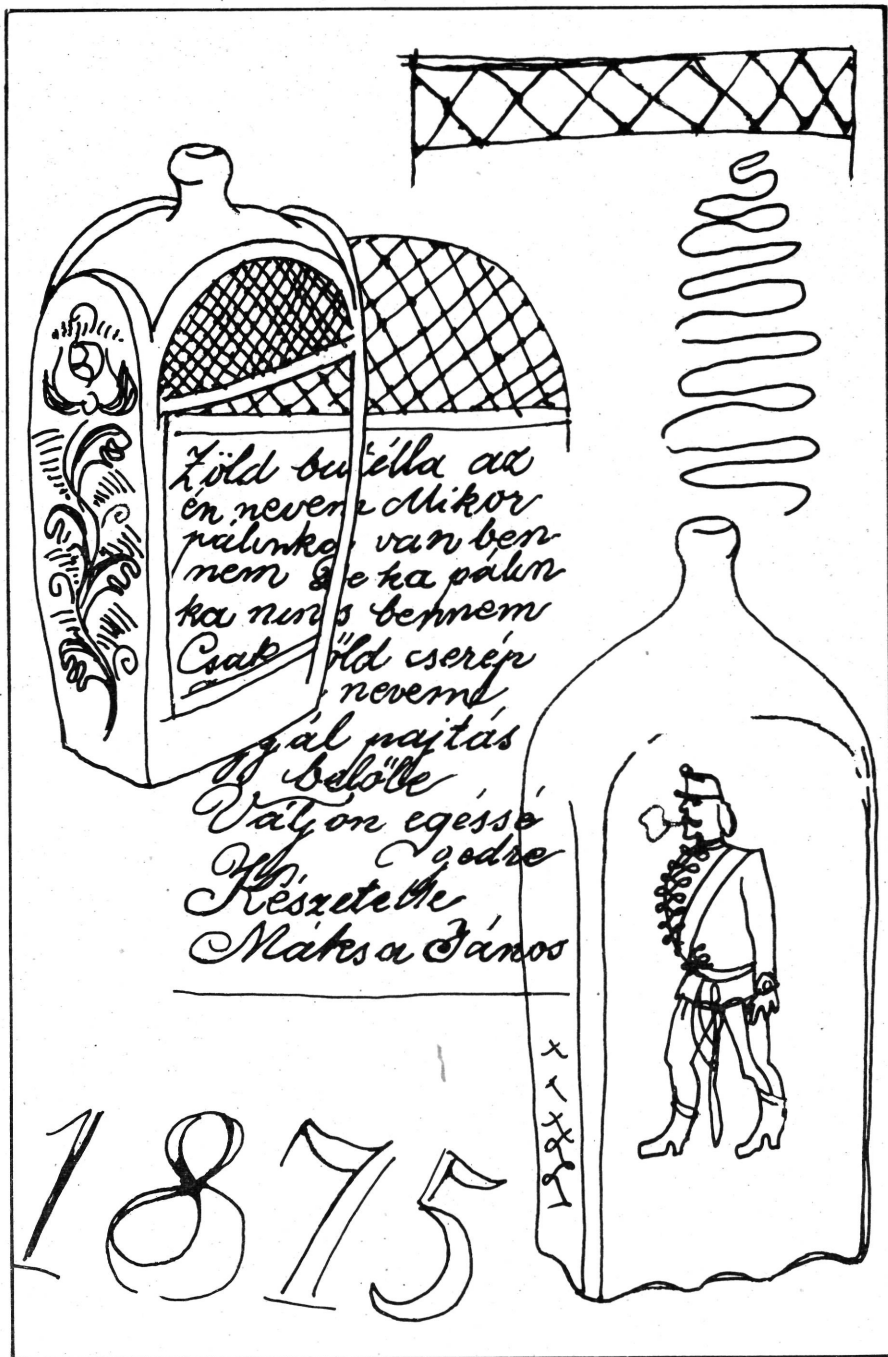 Zöld butélla az
én nevem Mikor
pálinka van ben-
nem De ha pálin
ka nincs bennem
Csak zöld cserép
nevem
gyál pajtás
belőlle
Váljon egéssé
gedre
Készetette
Máksa János
1875